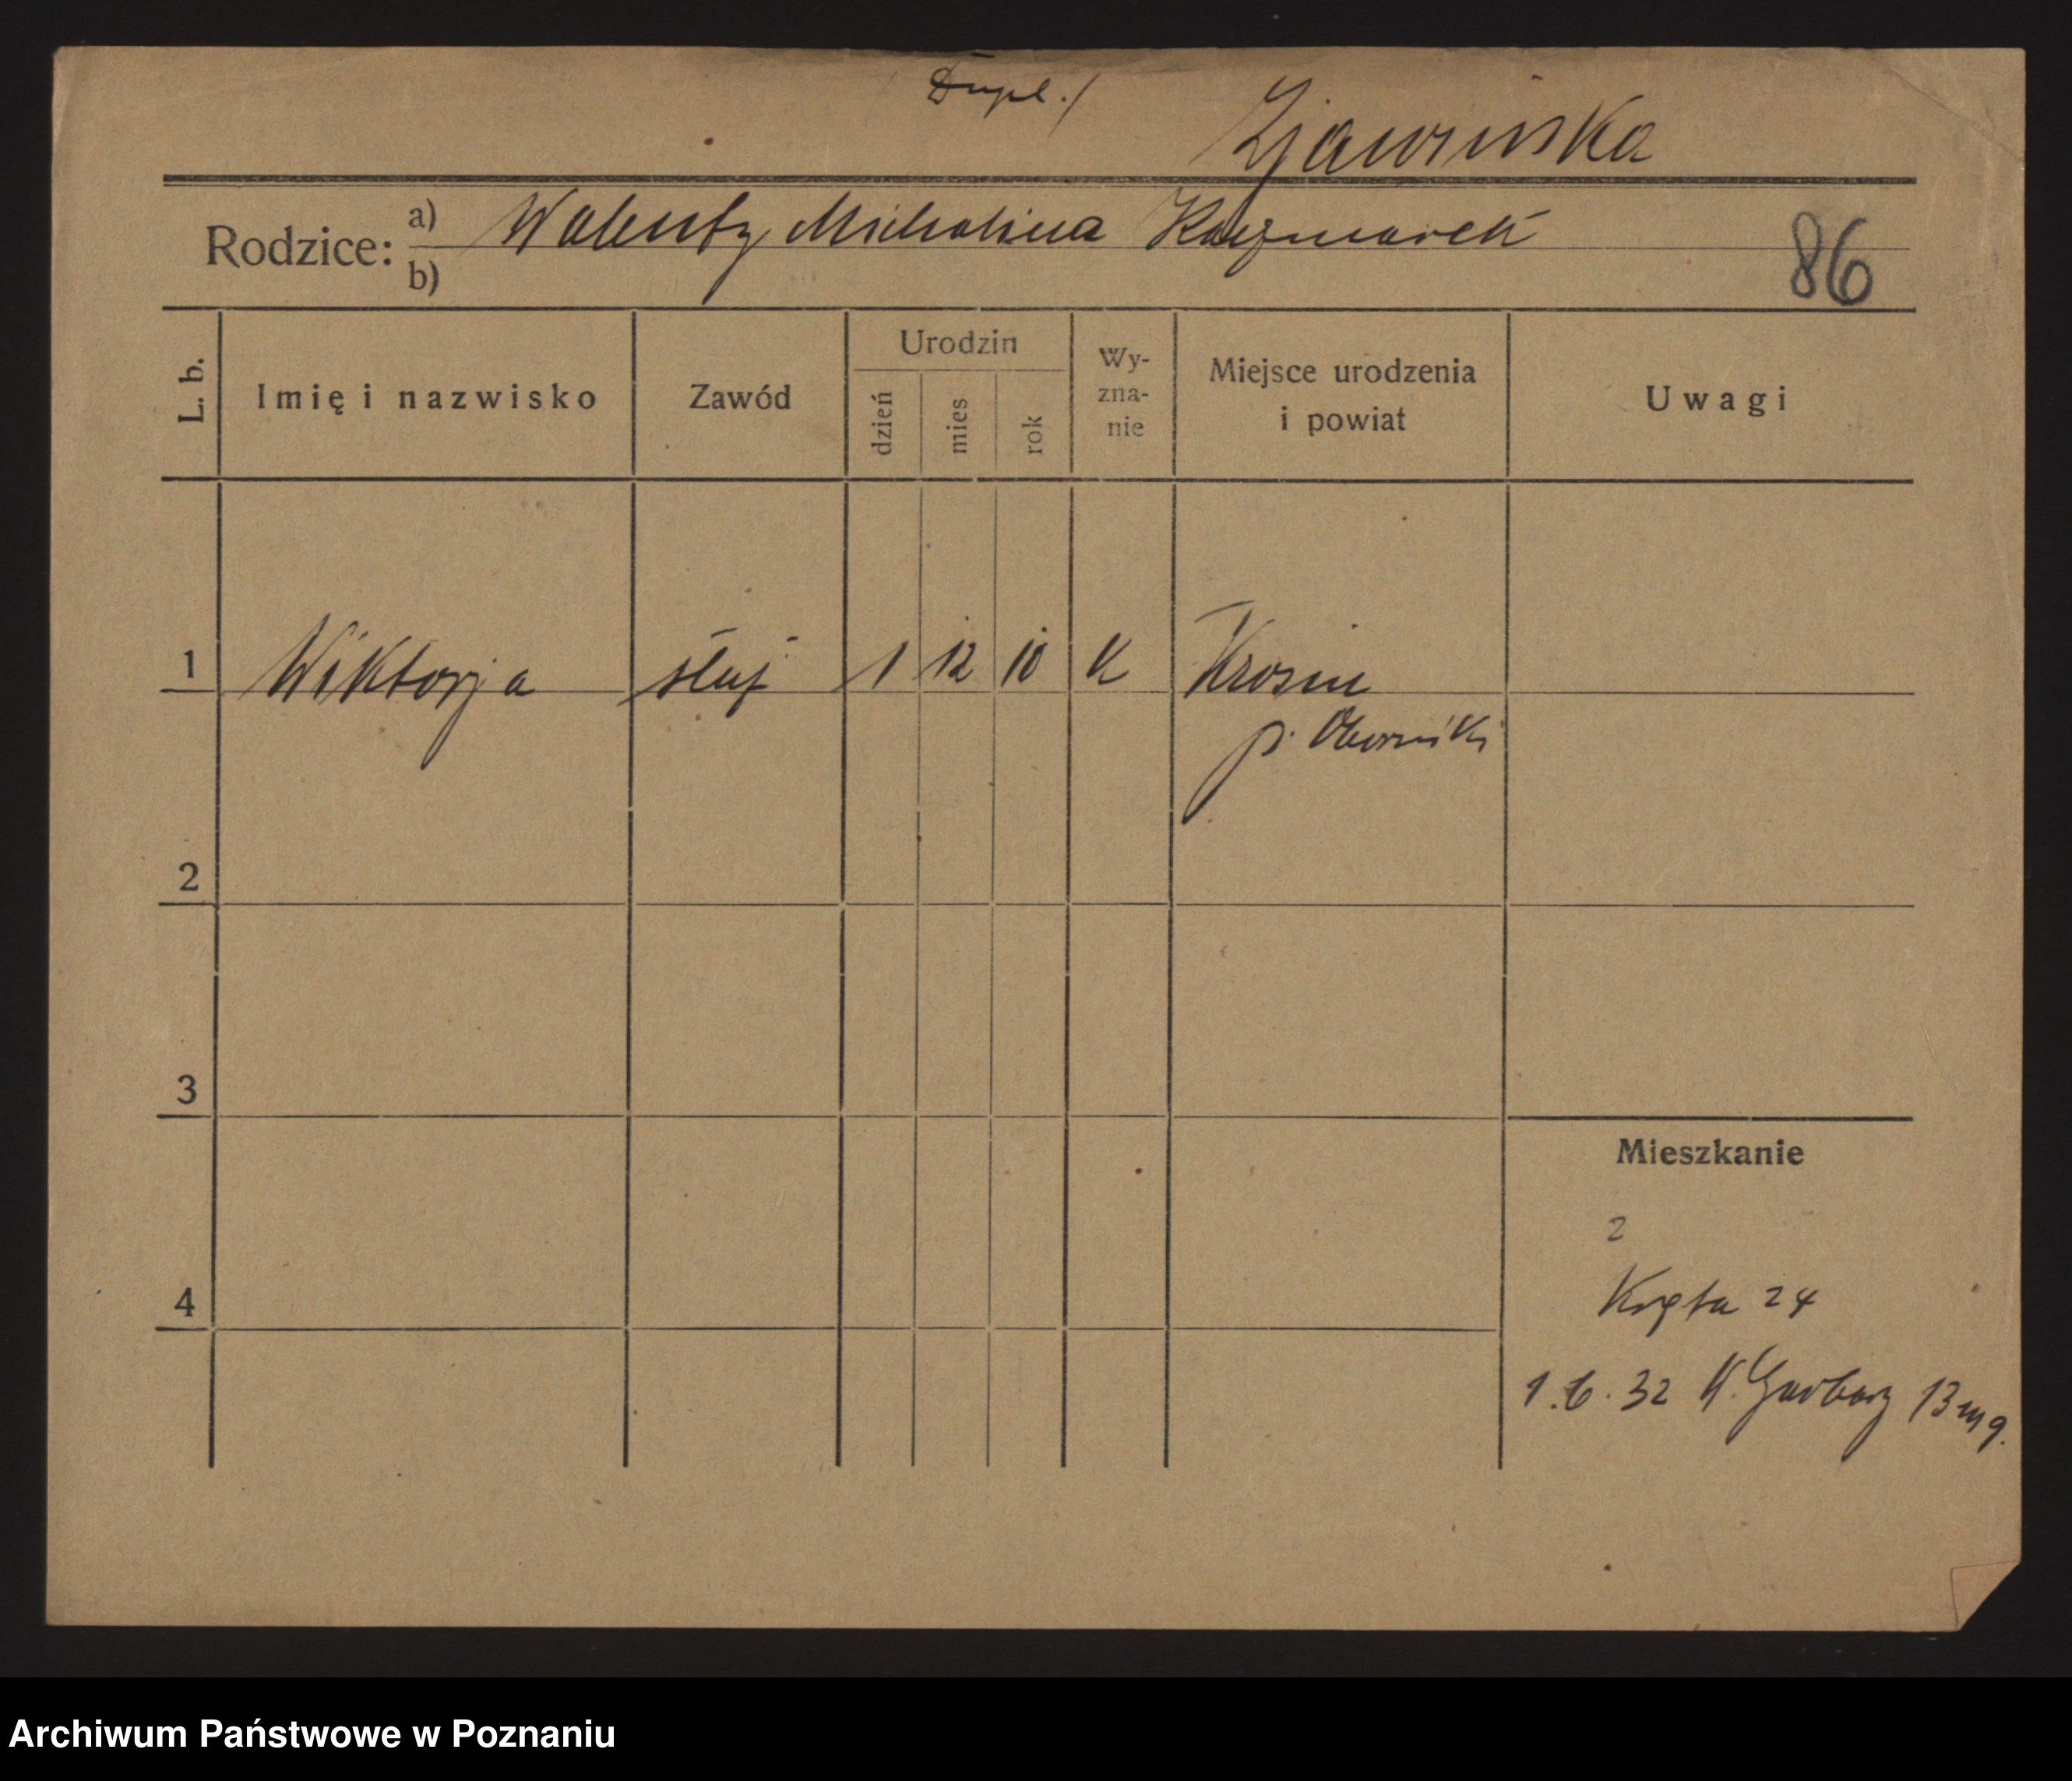 Dupl./
Zjawińska
Rodzice: a) Walenty Michalina Kaczmarek
b)
86
L. b.
Imię i nazwisko
Zawód
Urodzin
dzień
mies
rok
Wy-
zna-
nie
Miejsce urodzenia
i powiat
Uwagi
1 Wiktorja służ 1 12 10 K Krosin
p. Oborniki
2
3
4
Mieszkanie
2
Kręta 24
1.6.32 W. Garbary 13 m 9.
Archiwum Państwowe w Poznaniu